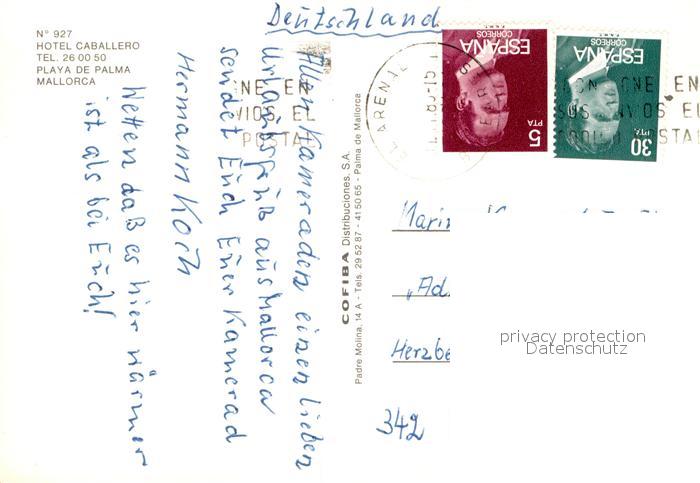 Nº 927
HOTEL CABALLERO
TEL. 26 00 50
PLAYA DE PALMA
MALLORCA
Allen Kameraden einen lieben
Urlaubsgruß aus Mallorca
sendet Euch Euer Kamerad
Hermann Koch
Wetten daß es hier wärmer
ist als bei Euch!
COFIBA Distribuciones, S.A.
Padre Molina, 14 A - Tels. 29 52 87 - 41 50 65 - Palma de Mallorca
Deutschland
ESPAÑA
CORREOS
5 PTA
ESPAÑA
CORREOS
30 PTA
EL ARENAL
NE EN
VIOS EL
POSTAL
"Ad
Herzbe
342
privacy protection
Datenschutz